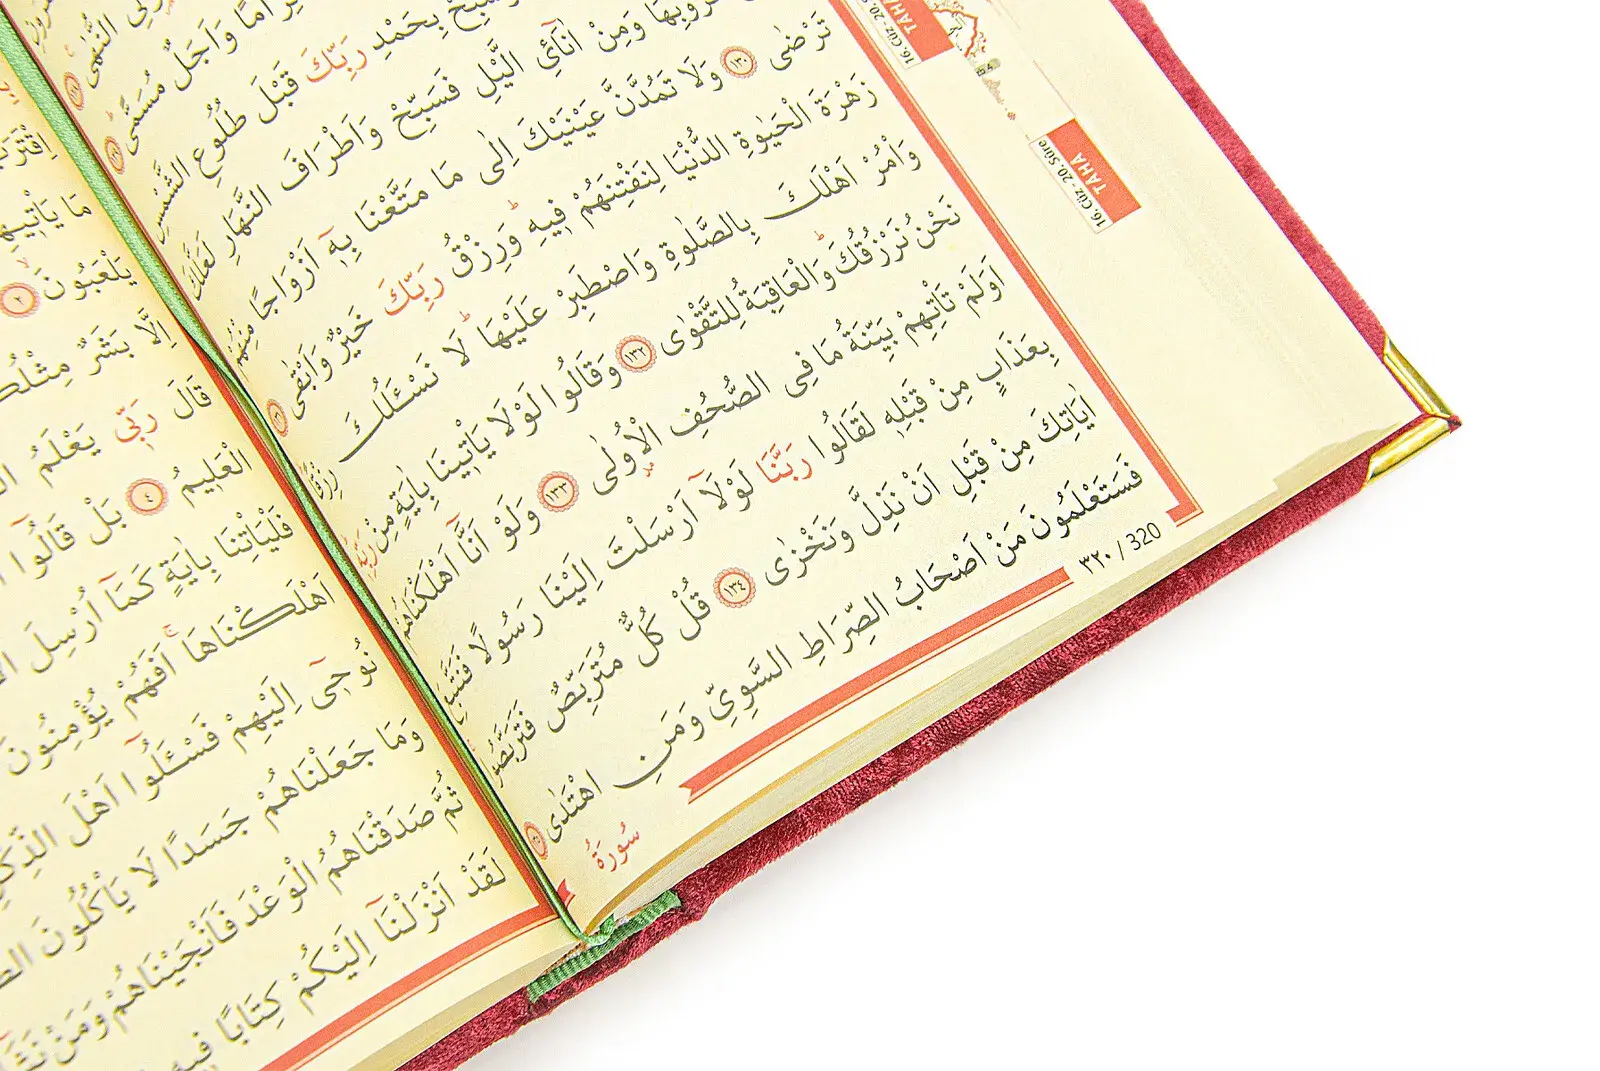 وَسَبِّحْ بِحَمْدِ رَبِّكَ قَبْلَ طُلُوعِ الشَّمْسِ
غُرُوبِهَا وَمِنْ اٰنَٓائِ الَّيْلِ فَسَبِّحْ وَاَطْرَافَ النَّهَارِ لَعَلَّكَ
تَرْضٰى ﴿١٣٠﴾ وَلَا تَمُدَّنَّ عَيْنَيْكَ اِلٰى مَا مَتَّعْنَا بِه۪ٓ اَزْوَاجًا مِنْهُمْ
زَهْرَةَ الْحَيٰوةِ الدُّنْيَا لِنَفْتِنَهُمْ ف۪يهِۜ وَرِزْقُ رَبِّكَ خَيْرٌ وَاَبْقٰى ﴿١٣١﴾
وَأْمُرْ اَهْلَكَ بِالصَّلٰوةِ وَاصْطَبِرْ عَلَيْهَاۜ لَا نَسْـَٔلُكَ رِزْقًاۜ
نَحْنُ نَرْزُقُكَۜ وَالْعَاقِبَةُ لِلتَّقْوٰى ﴿١٣٢﴾ وَقَالُوا لَوْلَا يَأْت۪ينَا بِاٰيَةٍ مِنْ رَبِّه۪ۜ
اَوَلَمْ تَأْتِهِمْ بَيِّنَةُ مَا فِي الصُّحُفِ الْاُو۫لٰى ﴿١٣٣﴾ وَلَوْ اَنَّٓا اَهْلَكْنَاهُمْ
بِعَذَابٍ مِنْ قَبْلِه۪ لَقَالُوا رَبَّنَا لَوْلَٓا اَرْسَلْتَ اِلَيْنَا رَسُولًا فَنَتَّبِعَ
اٰيَاتِكَ مِنْ قَبْلِ اَنْ نَذِلَّ وَنَخْزٰى ﴿١٣٤﴾ قُلْ كُلٌّ مُتَرَبِّصٌ فَتَرَبَّصُوا
فَسَتَعْلَمُونَ مَنْ اَصْحَابُ الصِّرَاطِ السَّوِيِّ وَمَنِ اهْتَدٰى
٣٢٠ / 320
سُورَةُ
TAHA
16. Cüz - 20. S
TAHA
16. Cüz - 20. Sûre
مَا يَأْت۪يهِمْ
يَلْعَبُونَ ﴿٢﴾
اِلَّا بَشَرٌ مِثْلُكُمْ
قَالَ رَبّ۪ي يَعْلَمُ
الْعَل۪يمُ ﴿٤﴾ بَلْ قَالُٓوا
فَلْيَأْتِنَا بِاٰيَةٍ كَمَٓا اُرْسِلَ
اَهْلَكْنَاهَاۚ اَفَهُمْ يُؤْمِنُونَ
نُوح۪ٓي اِلَيْهِمْ فَسْـَٔلُٓوا اَهْلَ الذِّكْرِ
وَمَا جَعَلْنَاهُمْ جَسَدًا لَا يَأْكُلُونَ
ثُمَّ صَدَقْنَاهُمُ الْوَعْدَ فَاَنْجَيْنَاهُمْ وَمَنْ
لَقَدْ اَنْزَلْنَٓا اِلَيْكُمْ كِتَابًا ف۪يهِ